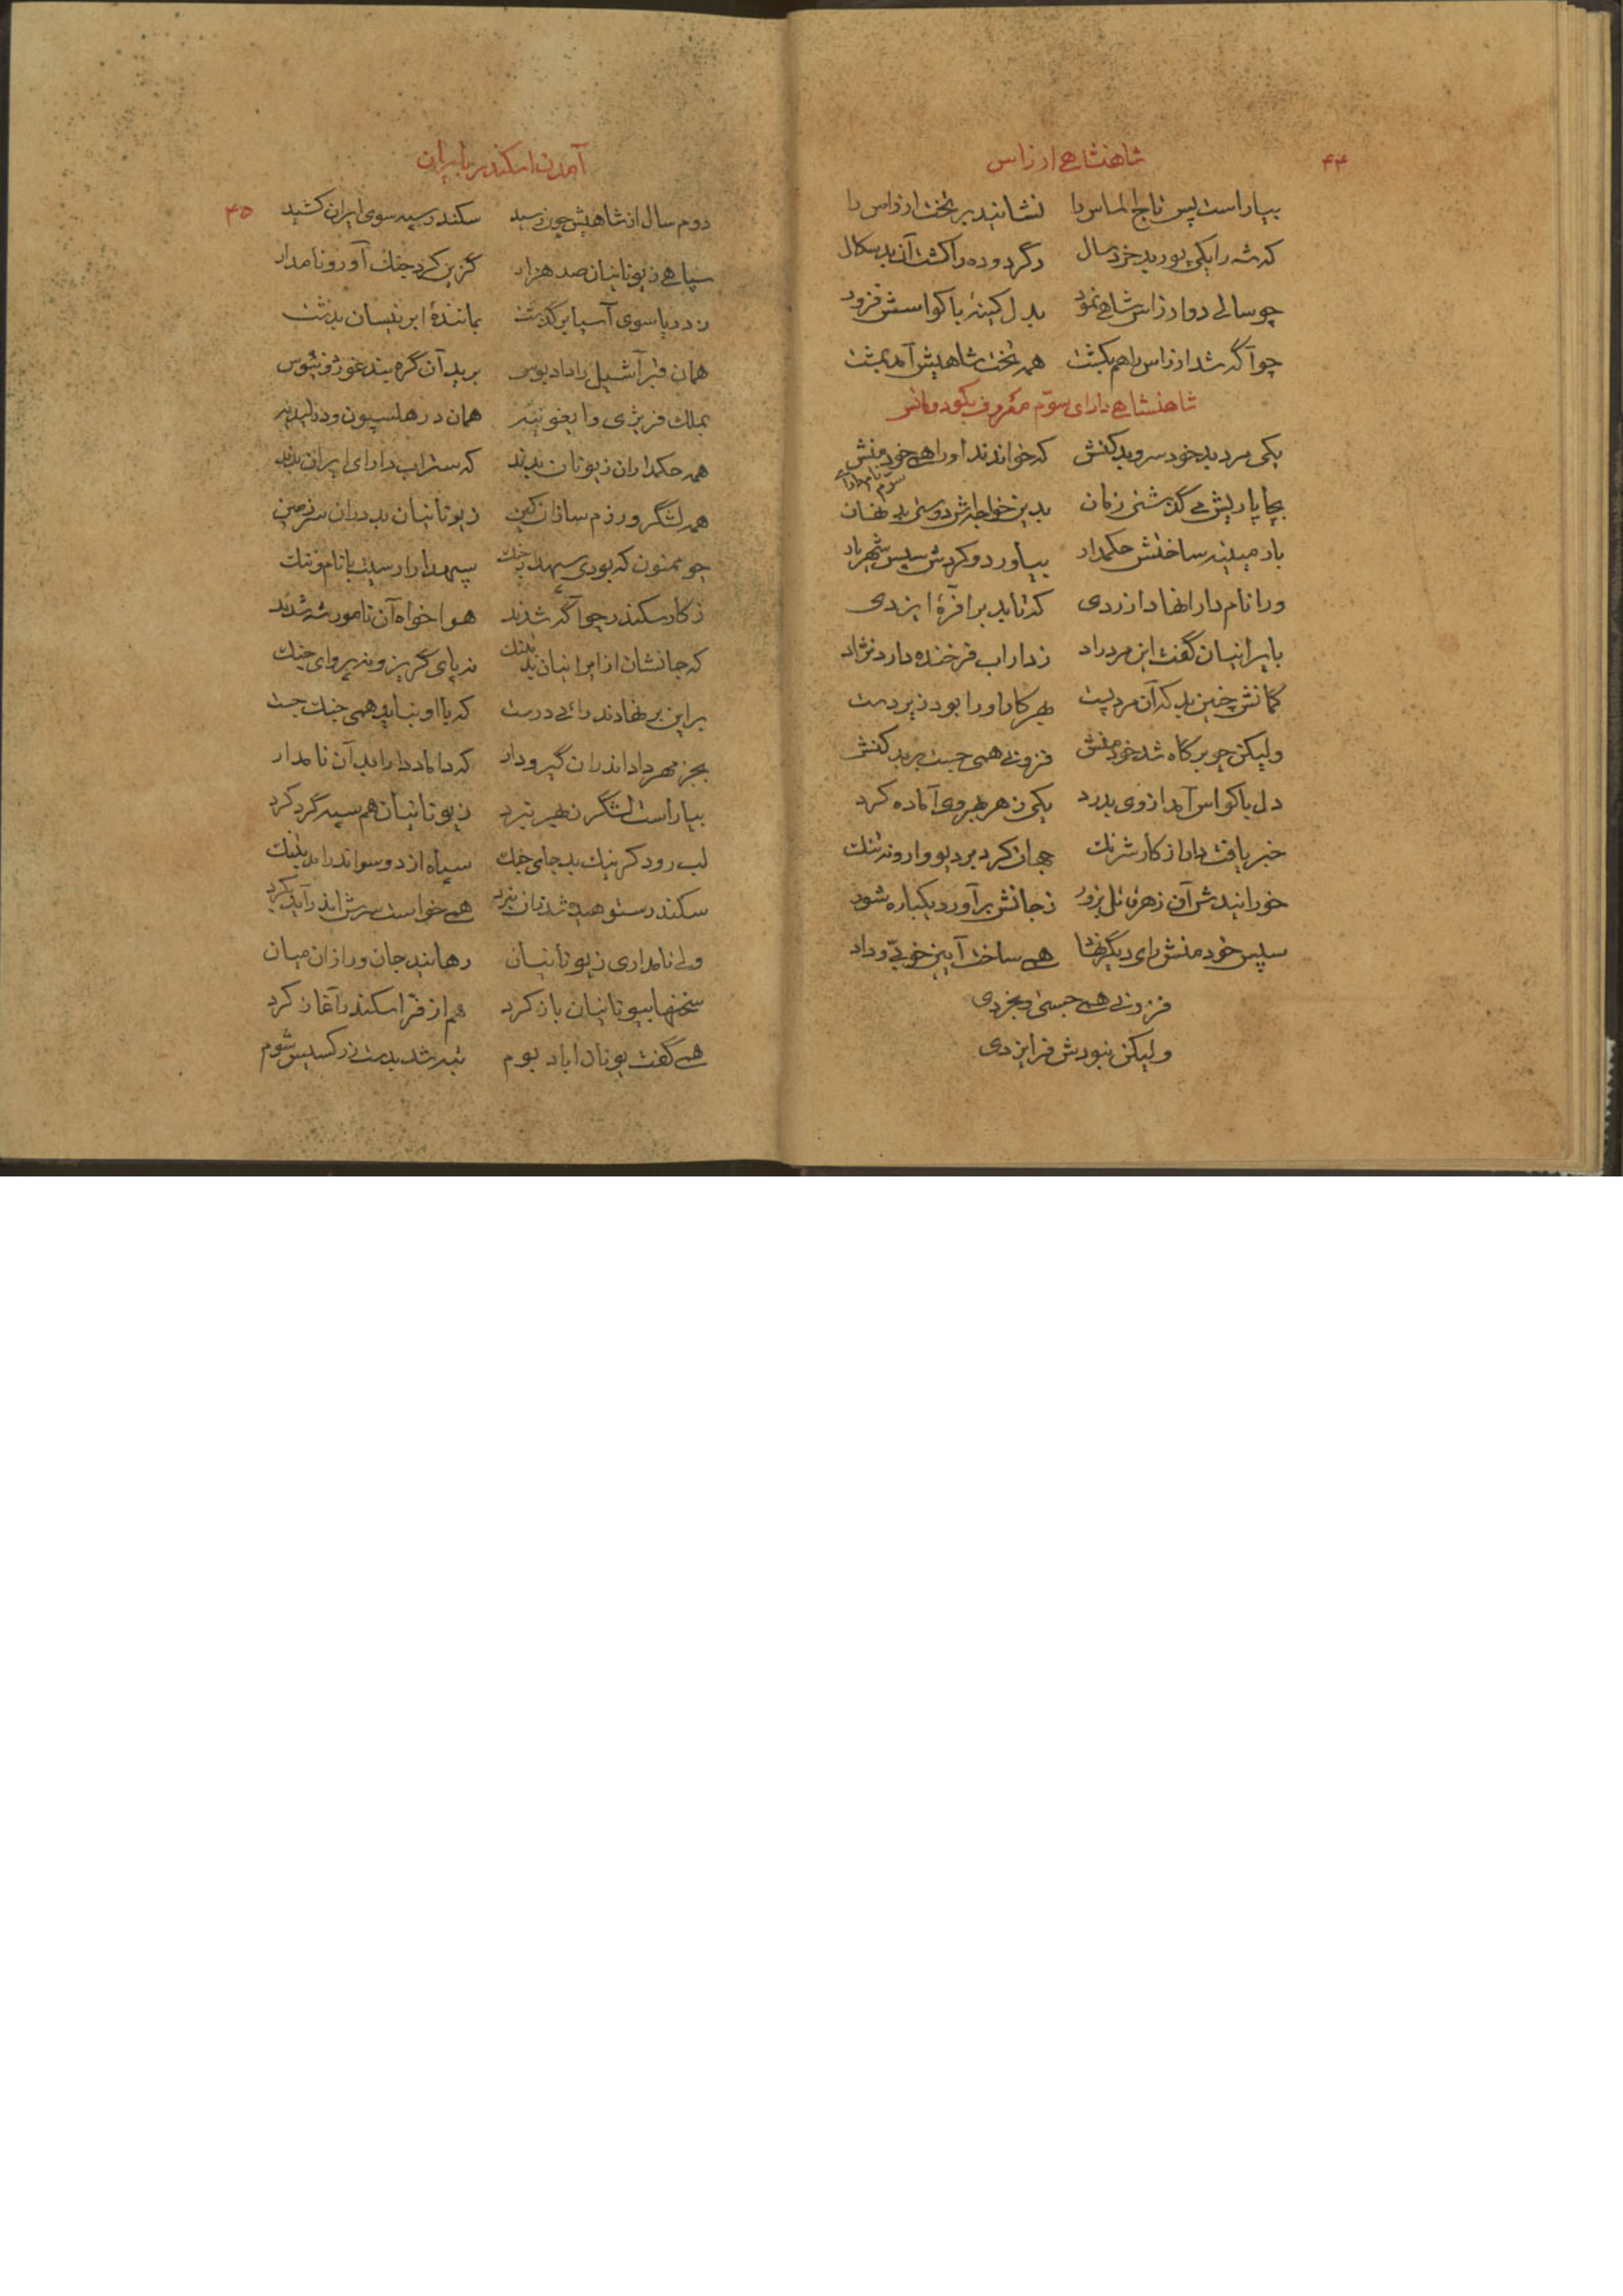 ۴۴
شاهنشاهی ارزاس
بیاراست پس تاج الماس را نشانید بر تخت ارزاس را
که شه را یکی پور بد خردسال دگر دوده را کشت آن بدسگال
چو سالی دو ارزاس شاهی نمود بدل کینهٔ باگواسش فزود
چو آگه شد ارزاس را هم بکشت همه تخت شاهیش آمد بمشت
شاهنشاهی دارای سوّم معروف بکودومانس
یکی مرد بد خودسر و بدکنش که خواندند او را همی خودمنش
سوّم نام دارا
بجاپاریش می گذشتی زمان بدین خواجه‌اش دوستی بد نهان
بارمینیه ساختش حکمدار بیاورد و کردش سپس شهریار
ورا نام دارا نهاد از ردی که تابد بر او فرّهٔ ایزدی
بایرانیان گفت این مرد راد ز داراب فرخنده دارد نژاد
گمانش چنین بد که آن مرد پست بهر کار او را بود زیردست
ولیکن چو بر گاه شد خودمنش فزونی همی جست بر بدکنش
دل باگواس آمد از وی بدرد یکی زهر بهر وی آماده کرد
خبر یافت دارا ز کار شرنگ جهان کرد بر دیو وارونه تنگ
خورانیدش آن زهر قاتل بزور ز جانش برآورد یکباره شور
سپس خودمنش رای دیگر نهاد همی ساخت آیین خوبیّ و داد
فزونی همی جستی و بخردی
ولیکن نبودش فر ایزدی
آمدن اسکندر بایران
۴۵
دوم سال از شاهیش چون رسید سکندر سپه سوی ایران کشید
سپاهی ز یونانیان صد هزار گزین کرد جنگ‌آور و نامدار
ز دریا سوی آسیا برگذشت بمانندهٔ ابر نیسان بدشت
همان قبر آشیل را داد بوس برید آن گره بند غوژوفیوس
بملک فریژی و ایغونیه همان در هلسپون و در لیدیه
همه حکمداران ز یونان بدند که ستراب دارای ایران بدند
همه لشگر و رزم سازان کین ز یونانیان بد در آن سرزمین
چو ممنون که بودی سپهدار جنگ سپهدارا رسیت با نام و ننگ
ز کار سکندر چو آگه شدند هواخواه آن نامور شه شدند
که جانشان از ایرانیان بد بتنگ نه پای گریز و نه پروای جنگ
بر این بر نهادند رائی درست که با او نباید همی جنگ جست
بجز مهرداد اندران گیر و دار که داماد دارا بد آن نامدار
بیاراست لشگر ز بهر نبرد ز یونانیان هم سپه گرد کرد
لب رود کرنیک بد جای جنگ سپاه از دو سو اندر آمد بتنگ
سکندر ستوهیده شد زان نبرد همی خواست سرش اندر آید بگرد
ولی نامداری ز یونانیان رهانید جان ورا زان میان
سخنها بیونانیان باز کرد هم از فرّ اسکندر آغاز کرد
همی گفت یونان آباد بوم تبه شد بدست زرکسیس شوم